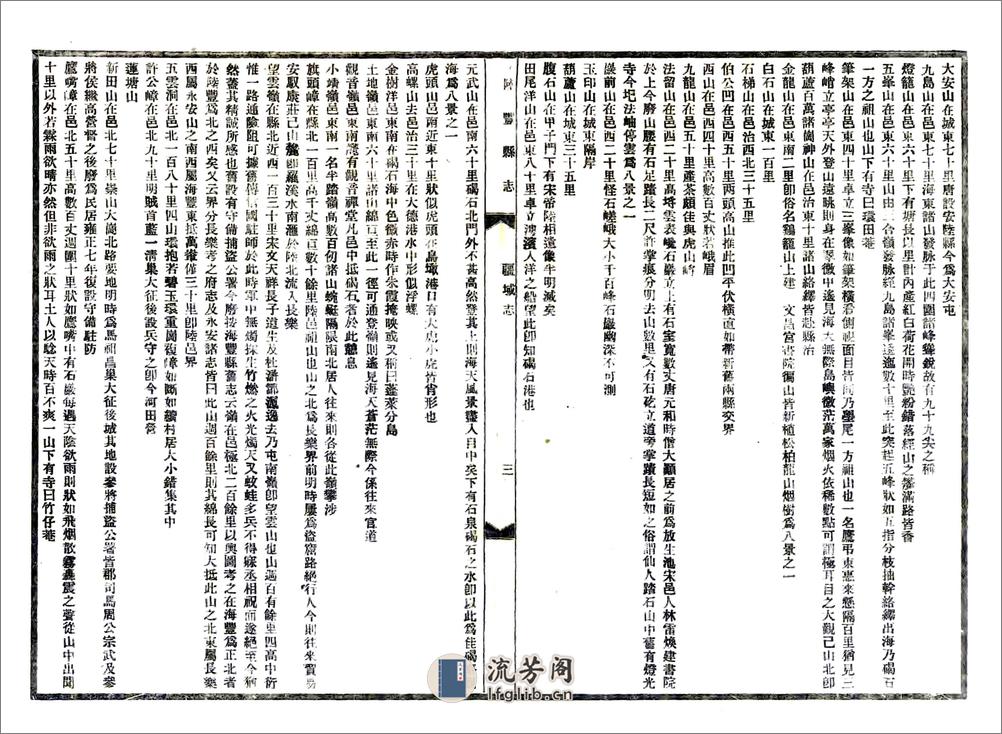 大安山在城東七十里唐設安陸縣今為大安屯
九島山在邑東七十里海東諸山發脉于此四圍諸峰聳銳故有九十九尖之稱
燈籠山在邑東六十里山下有塘長以里計內產紅白荷花開時艷粉錯落經山之家滿路皆香
五峯山在邑東六十里山由三合嶺發脉經九島諸峯逶迤數十里至此突起五峰狀如五指分枝抽幹絡繹出海乃碣石
一方之祖山也山下有寺曰環田菴
筆架山在邑東四十里卓立三峯像如筆架橫看側視面目皆同乃墨尾一方祖山也一名鷹弔東惠來懸隔百里猶見三
峰峭立亭亭天外登山遠眺則身在翠微中遙見海大無際島嶼微茫萬家烟火依稀數點可謂極耳目之大觀已山北卽
葫蘆百萬諸崗神山在邑治東十里諸山絡繹皆於縣治
金龍山在邑東南二里卽俗名鷄籠山上建 文昌宮書院獨山皆新植松柏龍山烟樹為八景之一
白石山在城東一百里
石梯山在邑治西三十五里
伯公凹在邑西五十里兩頭高山推此凹平伏橫直如帶新舊兩縣交界
西山在邑西四十里高數百丈狀若峨眉
九龍山在邑五十里產茶頗佳與虎山峰
法留山在邑西二十里高埓雲表巉石巖立上有石室寬數丈唐元和時僧大顚居之前為放生池宋邑人林雷煥建書院
於上今磨山腰有石足踏長二尺許掌痕分明去山數里又有石矻立道旁掌蹟長短如之俗謂仙人踏石山中舊有燈光
寺今圮法岫停雲為八景之一
巖前山在邑西二十里怪石嵯峨大小千百峰石巖幽深不可測
玉印山在城東隔岸
葫蘆山在城東三十五里
腹石山在甲子門下有宋帝陸相遠像半明滅矣
田尾洋山在邑東八十里卓立灣濱入洋之船望此卽知碣石港也
陸豐縣志
疆域志
三
元武山在邑南六十里碣石北門外不甚高然登其上則海天風景盡入目中矣下有石泉碣石之水卽以此為佳碣
海為八景之一
虎頭山邑南近東十里狀似虎頭在烏墩港口有大虎小虎皆肖形也
高螺山去邑治東三里在大德港水中形似浮螺
金樹洋邑東南在碣石海中色微赤時作朱霞掩映或又稱曰蓬萊分島
土地嶺邑東南六十里諸山綿亘至此一徑可通登嶺則遙見海天蒼茫無際今係往來官道
觀音嶺邑東南舊有觀音禪堂凡邑中抵碣石者於此憩息
小靖嶺邑東南一名半踏嶺高數百仞諸山蜿蜒隔限南北居人往來則各從此嶺攀涉
旗頭嶂在縣北一百里高千丈綿亘數十餘里陸邑祖山也山之北為長樂界前明時屢為盜窟路絕行人今則往來貿易
安馭康莊己山麓卽羅溪水南滙於陸北流入長樂
望雲嶺在縣北近西一百二十里宋文天祥長子道生及杜滸鄒洬逸去乃屯南嶺卽望雲山也山週百有餘里四高中衍
惟一路通險阻可據舊傳信國駐師於此時軍中無燭採生竹燃之火光燭天又蚊蛙多兵不得寐丞相祝而遂絕至今猶
然蓋其精誠所感也舊設有守備捕盜公署今廢按海豐縣舊志云嶺在邑極北二百餘里以輿圖考之在海豐為正北者
於陸豐為北之西矣又云界分長樂考之府志及永安諸志皆曰此山週百餘里則其綿長可知大抵此山之北東屬長樂
西屬永安山之南西屬海豐東抵萬僅三十里卽陸邑界
五雲洞在邑北一百八十里四山環抱若碧玉環重崗複嶂如斷如續村居大小錯集其中
許公嶂在邑北九十里明賊首藍一清巢大征後設兵守之卽今河田營
蓮塘山
新田山在邑北七十里崇山大崗北路要地明時為馬祖昌巢大征後城其地設參將捕盜公署皆郡司馬周公宗武及參
將侯繼高營暨之後廢為民居雍正七年復設守備駐防
鷹嘴嶂在邑北五十里高數百丈週圍十里狀如鷹嘴中有石巖每遇天陰欲雨則狀如飛烟散霧轟震之聲從山中出聞
十里以外若霧雨欲晴亦然但非欲雨之狀耳土人以騐天時百不爽一山下有寺曰竹仔菴
流芳阁
lfglib.cn